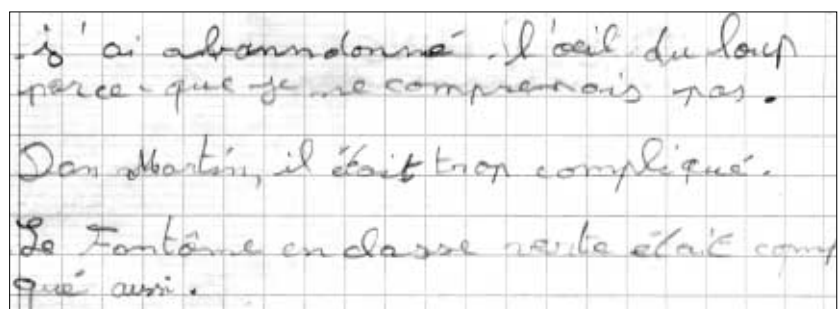 j'ai abanndonné l'œil du loup
parce-que je ne comprenais pas.
Dan Martin, il était trop compliqué.
Le Fantôme en classe verte était comp
qué aussi.